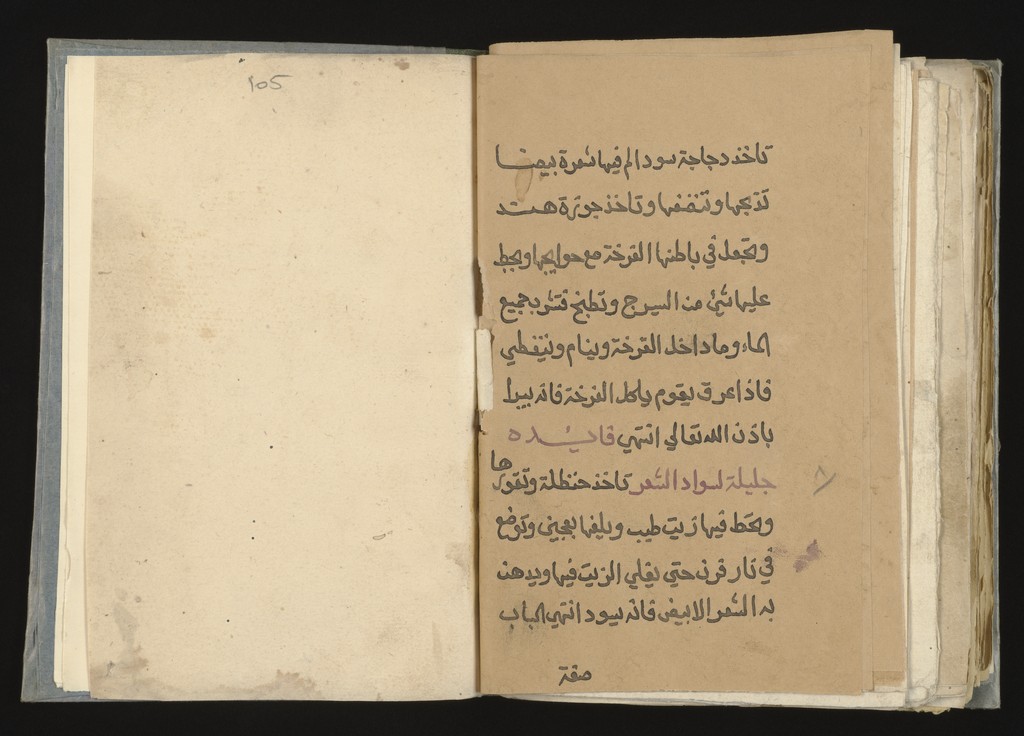 105
تاخذ دجاجة سودا لم فيها شعرة بيضا
تذبحها وتنضفها وتاخذ جوزة هند
وتجعل في باطنها الفرخة مع حوايجها ويحط
عليها شي من السيرج وتطبخ فتشرب جميع
الماء وما داخل الفرخة وينام ويتغطي
فاذا عرق يقوم ياكل الفرخة فانه يبرا
باذن الله تعالي انتهي فايده
جليلة لسواد الشعر تاخذ حنظلة وتقورها
ويحط فيها زيت طيب ويلفها بعجين وتوضع
في نار فرن حتي يغلي الزيت فيها ويدهن
به الشعر الابيض فانه يسود انتهي الباب
صفة